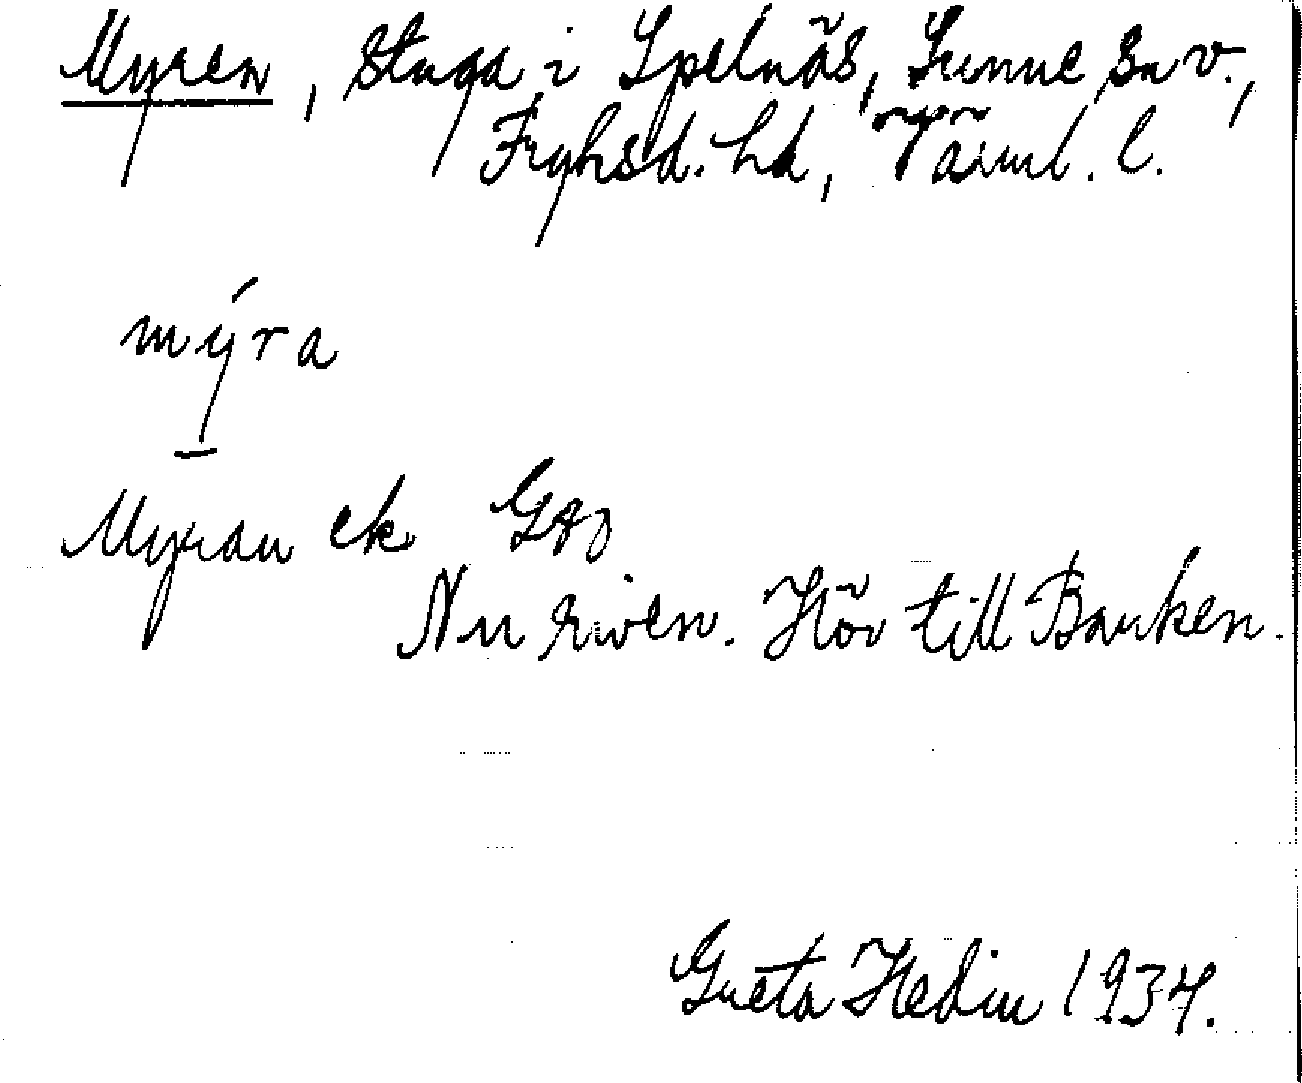 Myren, stuga i Spelnäs, Sunne sn v.,
Fryksd. hd, Värml. l.
mýra
Myran ek
Nu riven. Hör till Banken.
Greta Hedin 1934.